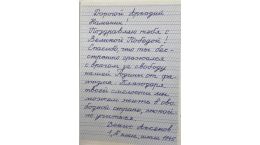 Дорогой Аркадий
Каманин!
Поздравляю тебя с
Великой Победой!
Спасибо, что ты бес-
страшно сражался
с врагом за свободу
нашей Родины от фа-
шизма. Благодаря
твоей смелости мы
можем жить в сво-
бодной стране, мы
Денис Аксенов
1